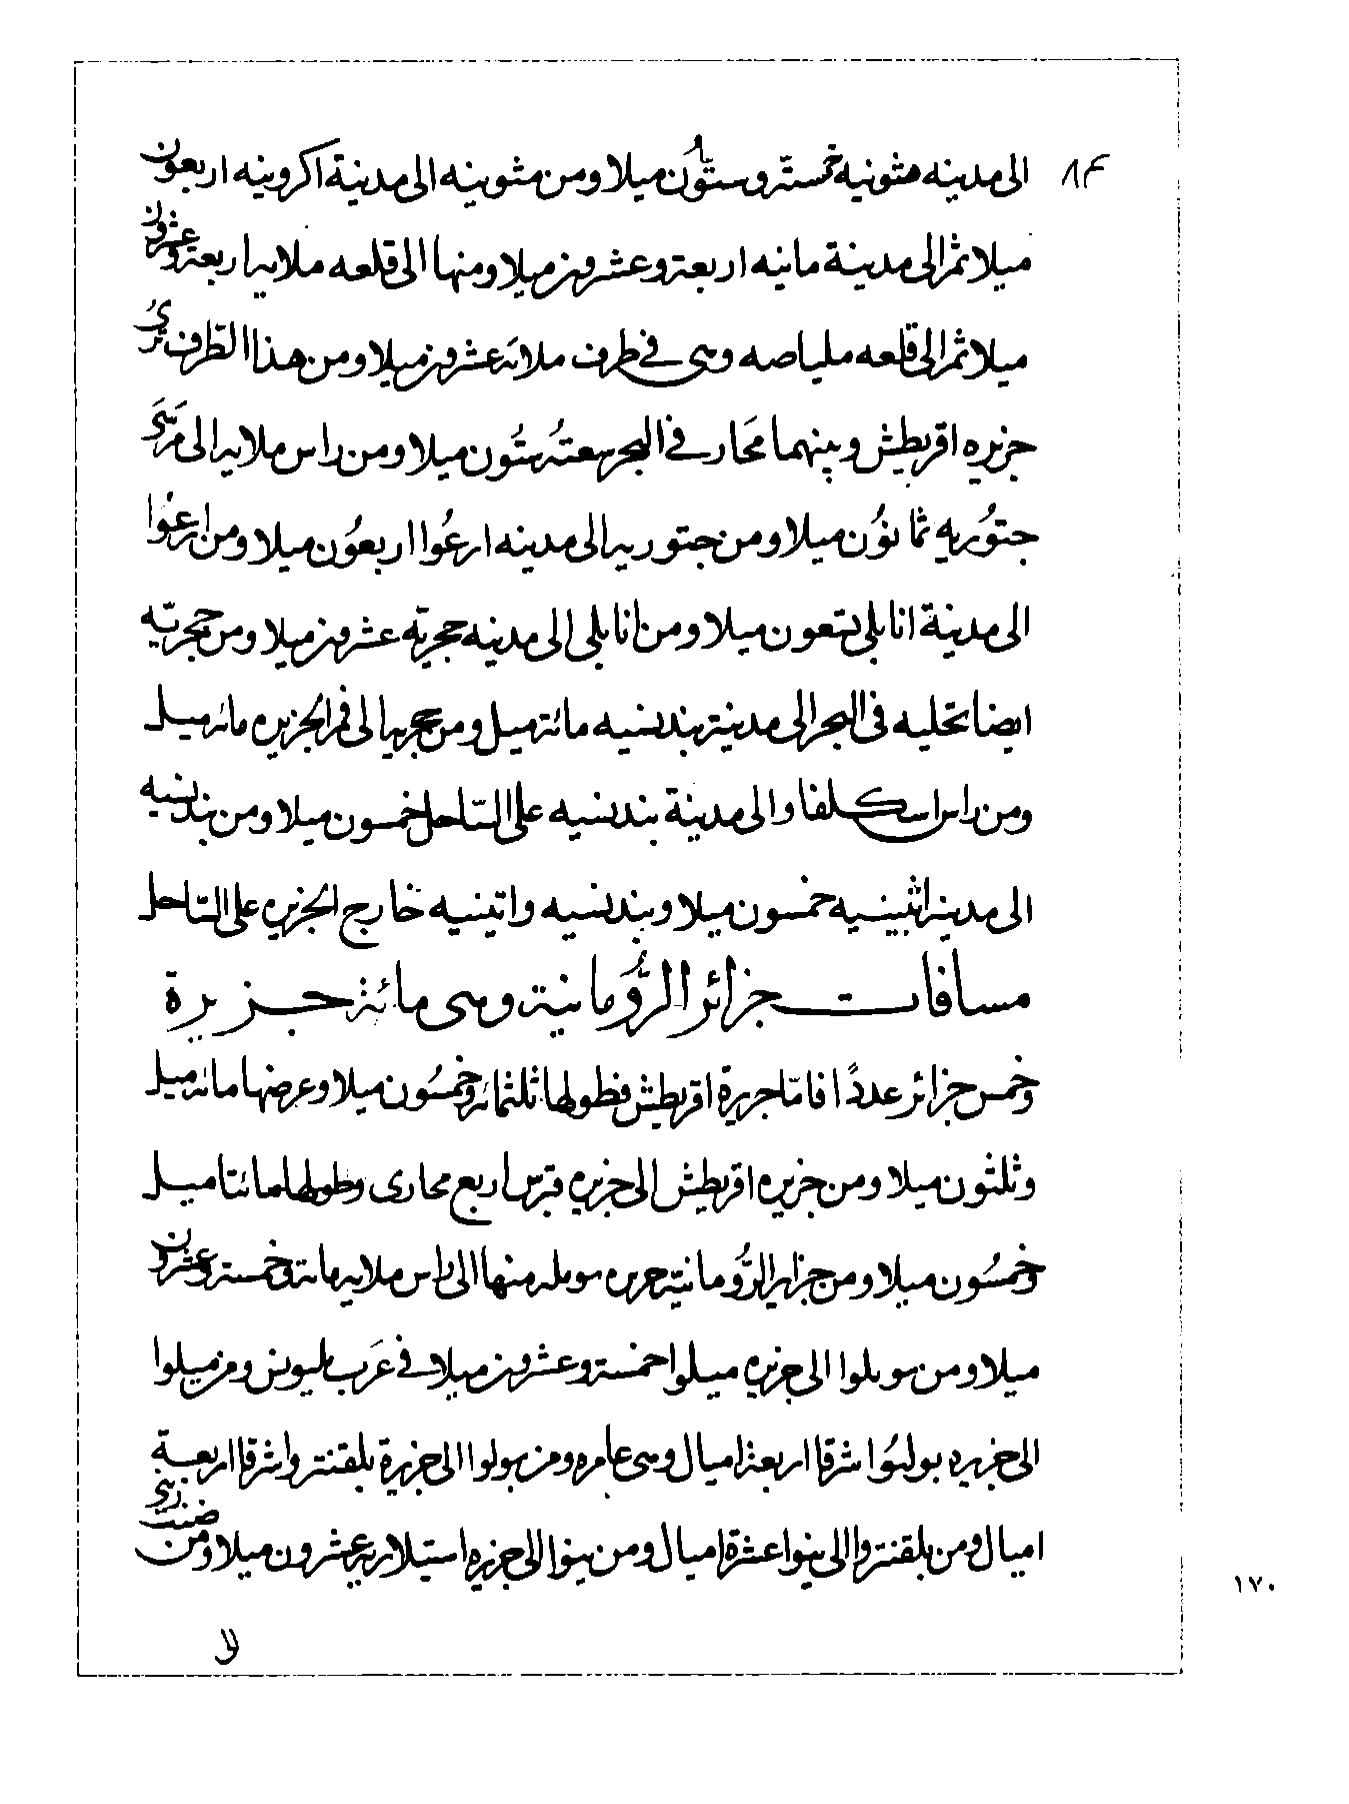 ٨٤
الى مدينه مثونيه خمسة وستّون ميلا ومن مثونيه الى مدينة اكرونيه اربعون
ميلا ثم الى مدينة مانيه اربعة وعشرون ميلا ومنها الى قلعه ملايه اربعة وعشرون
ميلا ثم الى قلعه ملياصه وهى فى طرف ملاية عشرون ميلا ومن هذا الطّرف ترى
جزيره اقريطش وبينهما مجار فى البحر ستون ميلا ومن راس ملايه الى مرسى
جتوريه ثمانون ميلا ومن جتوريه الى مدينه ارغوا اربعون ميلا ومن ارغوا
الى مدينة انابلى تسعون ميلا ومن انابلى الى مدينه جحريّه عشرون ميلا ومن جحريّه
ايضا تخليه فى البحر الى مدينة بندسيه مائة ميل ومن جحريه الى فم الجزيره مائة ميل
ومن راس اسكلفاوا الى مدينة بندسيه على السّاحل خمسون ميلا ومن بندسيه
الى مدينة اثينيه خمسون ميلا وبندسيه واثينيه خارج الجزيره على السّاحل
مسافات جزائر الرّومانية وهى مائة جزيرة
وخمس جزائر عددًا فامّا جزيرة اقريطش فطولها ثلثمائة وخمسون ميلا وعرضها مائة ميل
وثلثون ميلا ومن جزيره اقريطش الى جزيره قبرس اربع مجارى وطولها مائتا ميل
وخمسون ميلا ومن جزاير الرّومانيّه جزيره سوبله منها الى راس ملايه مائة وخمسة وعشرون
ميلا ومن سوبلوا الى جزيره ميلوا خمسة وعشرون ميلا فى غرب بليونس ومن ميلوا
الى جزيره بولبوا شرقا اربعة اميال وهى عامره ومن بولوا الى جزيرة بلقنتروا شرقا اربعة
اميال ومن بلقنتروا الى بنوا عشرة اميال ومن بنوا الى جزيره استبلاريه عشرون ميلا ومن
١٧٠